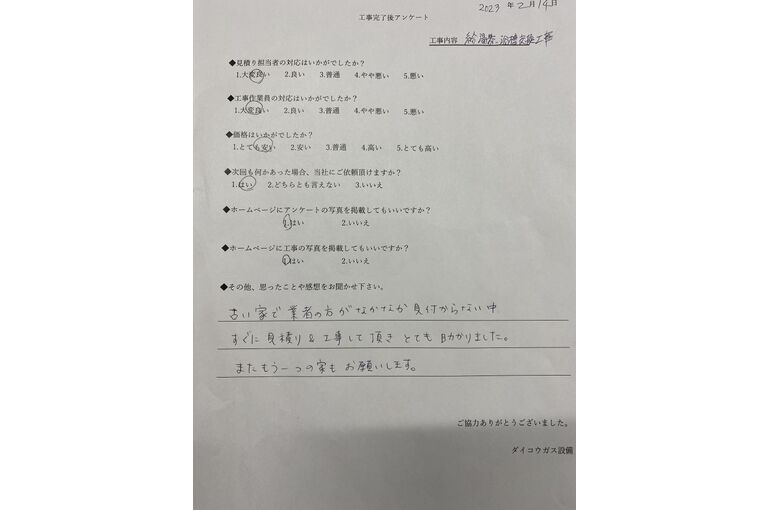 2023 年 2 月 14 日
工事完了後アンケート
工事内容 給湯器、浴槽交換工事
◆見積り担当者の対応はいかがでしたか?
1.大変良い 2.良い 3.普通 4.やや悪い 5.悪い
◆工事作業員の対応はいかがでしたか?
1.大変良い 2.良い 3.普通 4.やや悪い 5.悪い
◆価格はいかがでしたか?
1.とても安い 2.安い 3.普通 4.高い 5.とても高い
◆次回も何かあった場合、当社にご依頼頂けますか?
1.はい 2.どちらとも言えない 3.いいえ
◆ホームページにアンケートの写真を掲載してもいいですか?
1.はい 2.いいえ
◆ホームページに工事の写真を掲載してもいいですか?
1.はい 2.いいえ
◆その他、思ったことや感想をお聞かせ下さい。
古い家で業者の方がなかなか見付からない中
すぐに見積り&工事して頂きとても助かりました。
またもう一つの家もお願いします。
ご協力ありがとうございました。
ダイコウガス設備